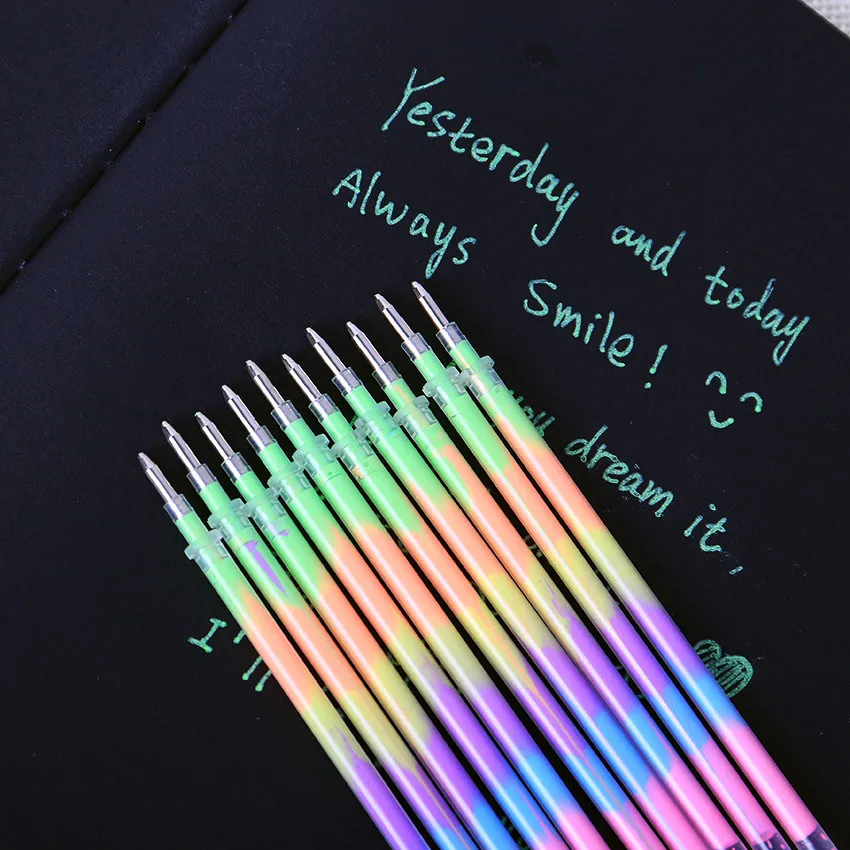 Yesterday and today
Always Smile!
you dream it,
I'll